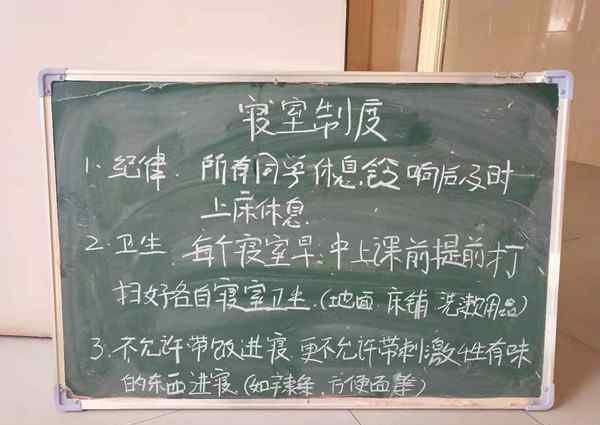 寝室制度
1、纪律、所有同学休息铃响后及时
上床休息
2、卫生、每个寝室早、中上课前提前打
扫好各自寝室卫生(地面、床铺、洗漱用品)
3、不允许带饭进寝、更不允许带刺激性有味
的东西进寝(如辣条、方便面等)